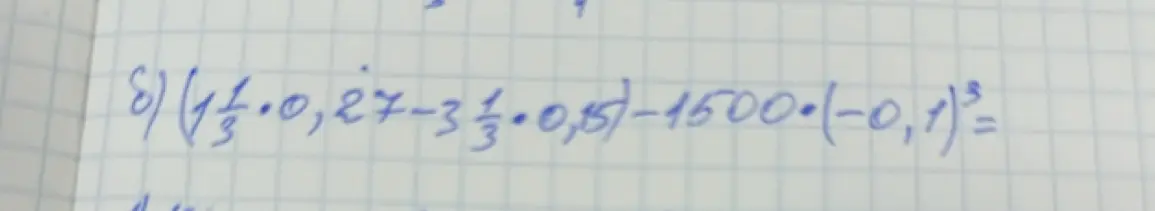 б) (1 1/3 · 0,27 - 3 1/3 · 0,15) - 1500 · (-0,1)³ =